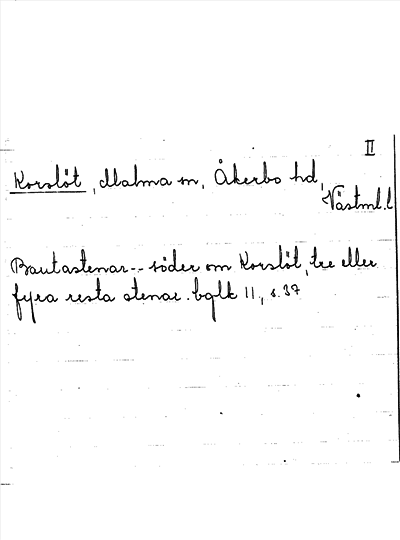 II
Korslöt, Malma sn, Åkerbo hd,
Västml.l
Bautastenar-- söder om Korslöt, tre eller
fyra resta stenar. bglk 11, s. 37